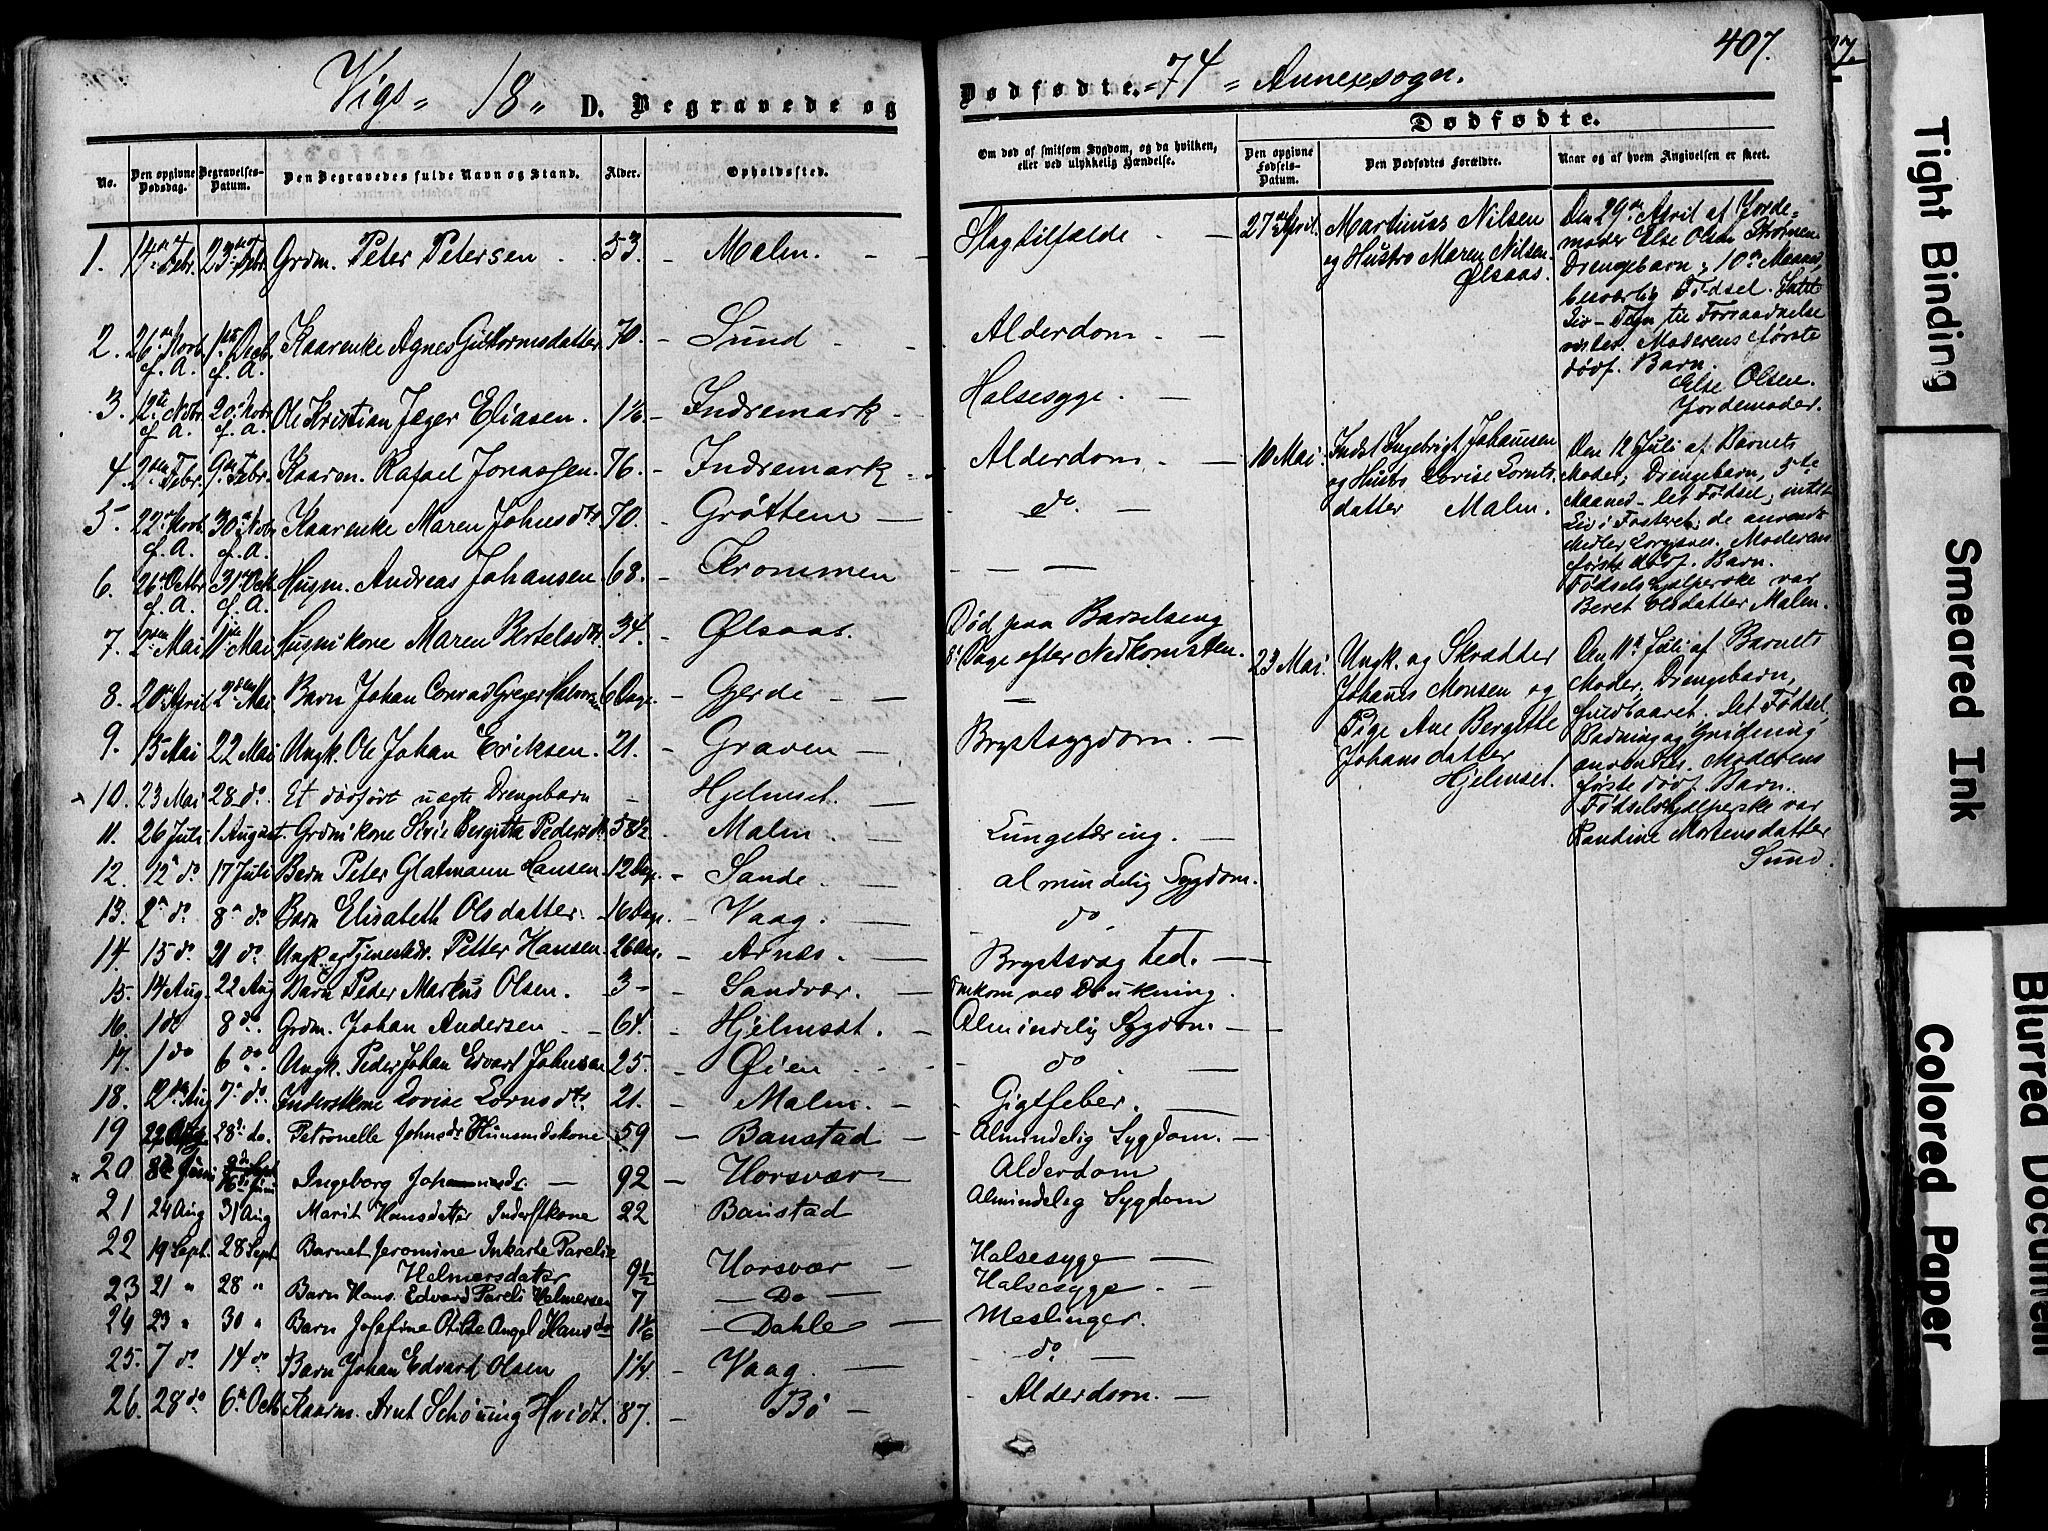 Vigs- 18" D. Begravede og
Dødfødte. "74" Annexsogn. 407.
No. Den opgivne Dødsdag. Begravelses-Datum. Den Begravedes fulde Navn og Stand. Alder. Opholdssted.
Om død af smitsom Sygdom, og da hvilken, eller ved ulykkelig Hændelse.
Dødfødte.
Den opgivne Fødsels-Datum. Den Dødfødtes Forældre. Naar og af hvem Angivelsen er skeet.
1. 14de Febr. 23de Febr. Grdm. Peter Petersen. 53. Malm. Slagtilfælde
2. 26de Novb. f. A. 1ste Decb. f. A. Kaarenke Agnes Guttormsdatter 70. Sund Alderdom
3. 12te Novbr. f. A. 20. Novbr. f. A. Ole Kristian Jæger Eliasen. 1 1/6 Indremark Halsesyge.
4. 2den Febr. 9de Febr. Kaarm. Rafael Jonassen. 76. Indremark Alderdom.
5. 22de Novb. f. A. 30te Novb. f. A. Kaarenke Maren Johnsdtr 70. Grøttem do.
6. 26de Octbr f. A. 31te Octb. f. A. Husm. Andreas Johansen 68. Strommen
7. 2den Mai 11te Mai Husm.kone Maren Bertelsdtr 34. Ølsaas. Død paa Barselseng
8 Dage efter Nedkomsten.
8. 20de April 2den Mai. Barn Johan Conrad Greger Halvorsen 6 Dage. Gjerde
9. 15 Mai 22 Mai Ungk. Ole Johan Eriksen. 21. Graven Brystsygdom.
10. 23 Mai 28 do. Et dødfødt uægte Drengebarn Hjelmset.
11. 26 Juli 1 August. Grdm.kone Sivie Bergitta Pedersdtr 58 1/2 Malm. Lungetæring.
12. 12te do 17 Juli Barn Peter Glatmann Hansen. 12 Dage. Sande. almindelig Sygdom.
13. 2den do 8de do Barn Elisabeth Olsdatter. 16 Dage. Vaag. do
14. 15 do. 21 do. Ungk. og Tjenestedr. Petter Hansen. 26 Aar. Arnæs. Brystsvaghed.
15. 14 Aug. 22 Aug Barn Peder Markus Olsen. 3 Sandvær. Omkom ved Drukning.
16. 1 do 8 do. Grdm. Johan Andersen 64. Hjelmsæt. Almindelig Sygdom.
17. 1 do 6 do Ungk. Peder Johan Edvart Johansen 25. Øien do
18. 7de do. Inderstkone Lovise Lornsdtr. 21. Malm. Gigtfeber.
19 28de do. Petronelle Johnsdr Husmandskone 59 Baustad Almindelig Sygdom.
20. 16de Juni Ingeborg Johannesdr. 92 Horsvær Alderdom
21 24 Aug 31 Aug Marit Hansdatter Inderstkone 22 Baustad Almindelig Sygdom
22 19 Sept. 28 Sept. Barnet Jeromine Inkarte Parelie
Helmersdatter 9 1/2 Horsvær Halsesyge
23 21 " 28 " Barn Hans Edvard Pareli Helmersen 7 Do Halsesyge
24 23 " 30 " Barn Josefine Otilie Angel Hansdr 1 1/6 Dahle Meslinger.
25. 7 do 14 do. Barn Johan Edvart Olsen 1 1/4 Vaag. do
26. 28 do 6te Octb. Kaarm. Arnt Schøning Hvidt. 87. Bö Alderdom.
27de April. Martinus Nilsen
og Hustro Maren Nilsen
Ølsaas.
Den 29de April af Jorde-
moder Else Olsen Strømen
Drengebarn, 10de Maaned,
besværlig Fødsel. Intet
Liv-Tegn til Forraadnelse
viste. Moderens første
dødf. Barn.
Else Olsen.
Jordemoder.
10 Mai. Indst. Ingebrigt Johansen
og Hustro Lovise Lornts-
datter Malm.
Den 12 Juli af Barnets
Moder; Drengebarn, 5te
Maaned- let Fødsel, intet
Liv i Fosteret; de anvendte
Midler Moderens
første dødf. Barn.
Fødselshjælperske var
Beret Olsdatter Malm.
23 Mai. Ungk. og Skrædder
Johanes Monsen og
Pige Ane Bergitte
Johansdatter
Hjelmset.
Den 11te Juli af Barnets
Moder, Drengebarn,
fuldbaaret. let Fødsel,
Badning og Gnidning
anvendtes. Moderens
første dødf. Barn.
Fødselshjælperske var
Randine Mortensdatter
Sund.
Tight Binding
Smeared Ink
Colored Paper
Blurred Document